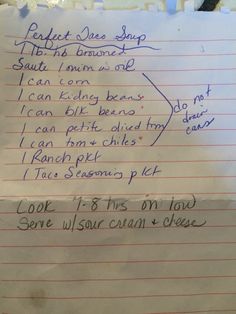 Perfect Taco Soup
1 lb. hb browned
Saute 1 onion in oil
1 can corn
1 can kidney beans
1 can blk beans
1 can petite diced tom
1 can tom & chiles
do not
drain
cans
1 Ranch pkt
1 Taco Seasoning pkt
Cook 7-8 hrs on low
Serve w/ sour cream & cheese